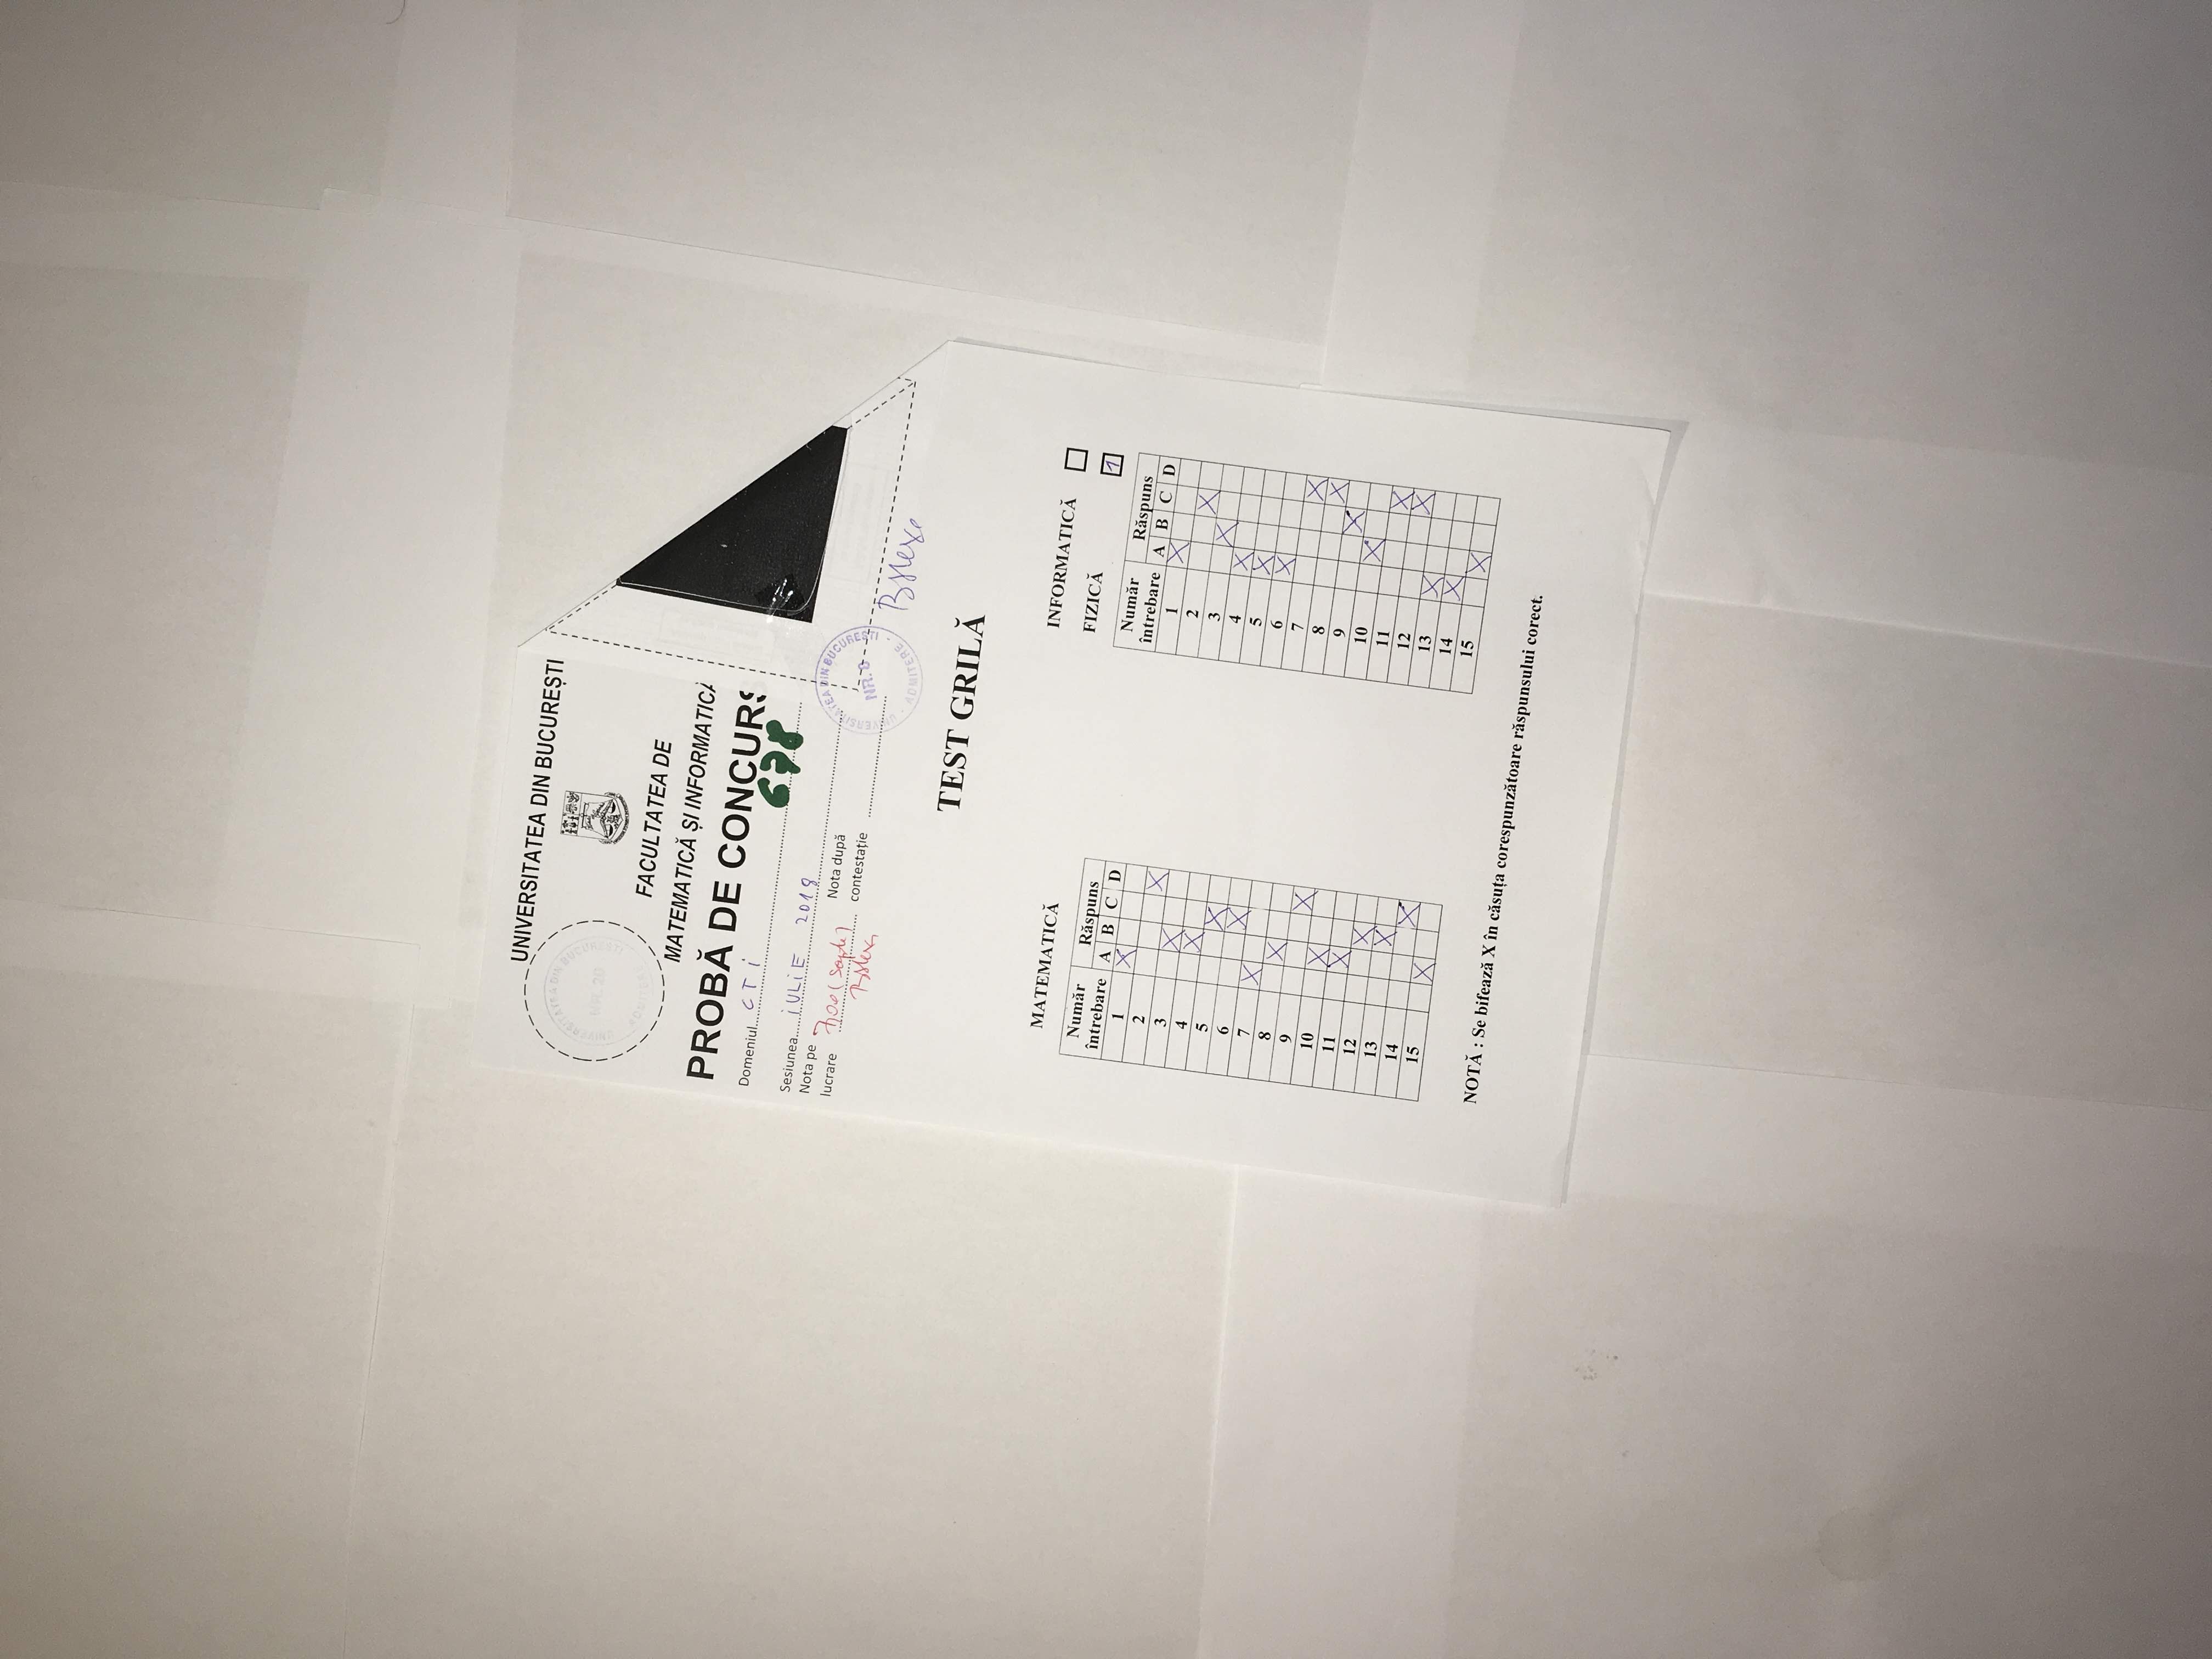 UNIVERSITATEA DIN BUCUREȘTI
UNIVERSITATEA DIN BUCUREȘTI
NR. 20
ADMITERE
FACULTATEA DE
MATEMATICĂ ȘI INFORMATICĂ
PROBĂ DE CONCURS
Domeniul CTi
678
Sesiunea iULiE 2018
Nota pe lucrare 7,00 (Șapte)
Nota după contestație
UNIVERSITATEA DIN BUCUREȘTI
NR. 8
ADMITERE
TEST GRILĂ
MATEMATICĂ
Număr întrebare Răspuns
A B C D
1 X
2 X
3 X
4 X
5 X
6 X
7 X
8 X
9 X
10 X
11 X
12 X
13 X
14 X
15 X
INFORMATICĂ
FIZICĂ 1
Număr întrebare Răspuns
A B C D
1 X
2 X
3 X
4 X
5 X
6 X
7 X
8 X
9 X
10 X
11 X
12 X
13 X
14 X
15 X
NOTĂ : Se bifează X în căsuța corespunzătoare răspunsului corect.